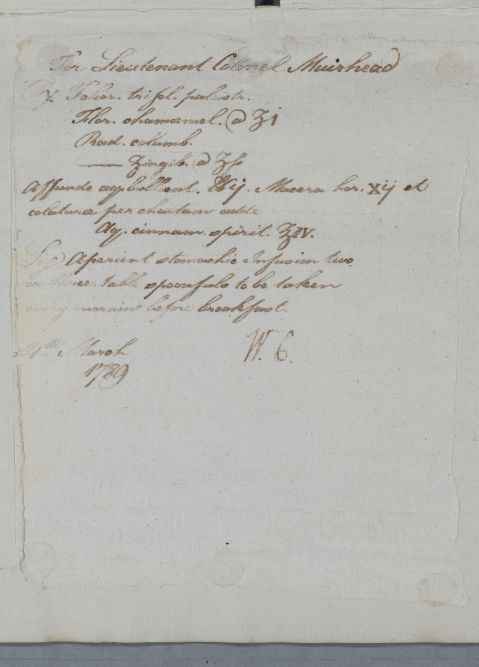 For Lieutenant Colonel Muirhead
℞ Folior. trifol. palustr.
Flor. chamæmel. @ ʒi
Rad. columb.
—— Zingib. @ ʒſs
Affunde aq. bullient. ℔ij. Macera hor. xij et
colaturæ per chartam adde
Aq. cinnam. spirit. ℥IV.
Sig. Aperient stomachic Infusion two
or three table spoonfuls to be taken
every morning before breakfast.
March
1789
W. C.